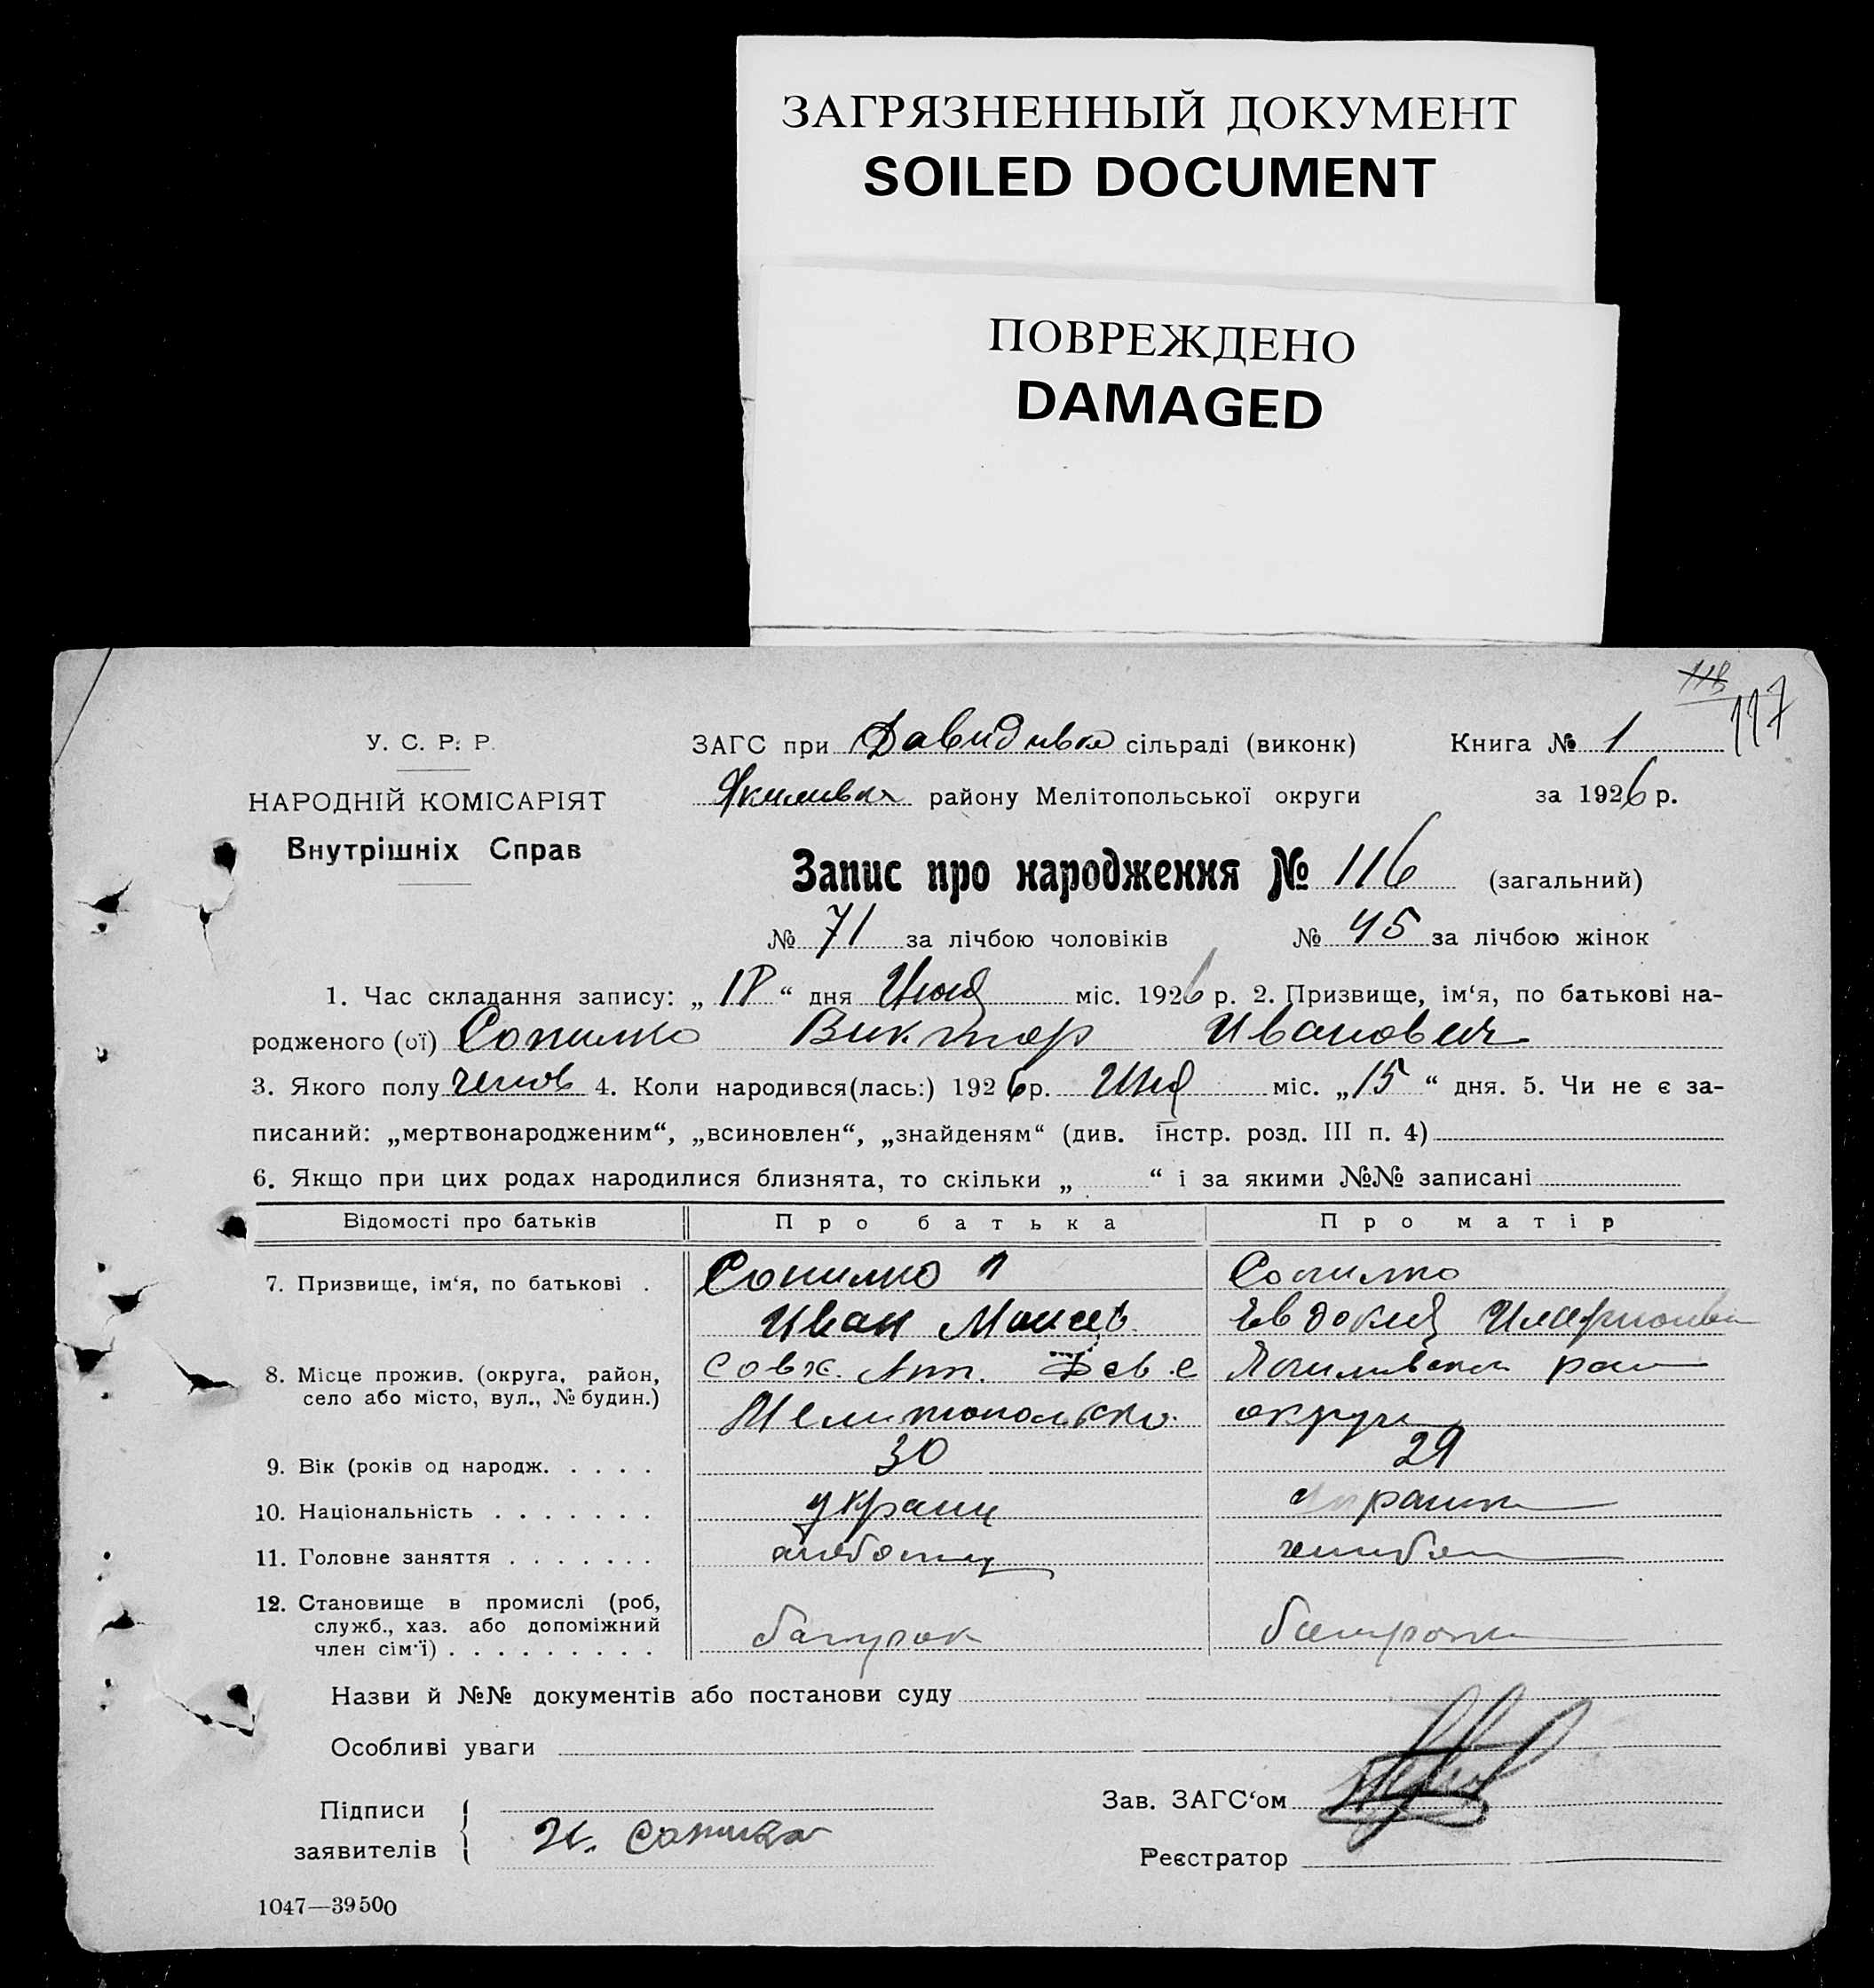 ЗАГРЯЗНЕННЫЙ ДОКУМЕНТ
SOILED DOCUMENT
ПОВРЕЖДЕНО
DAMAGED
118
117
У. С. Р. Р. ЗАГС при Давидивка сільраді (виконк) Книга № 1
НАРОДНІЙ КОМІСАРІЯТ району Мелітопольської округи за 1926 р.
Внутрішніх Справ
Запис про народження № 116 (загальний)
№ 71 за лічбою чоловіків № 45 за лічбою жінок
1. Час складання запису: „ 18 “ дня Июля міс. 1926 р. 2. Призвище, ім‘я, по батькові на-
родженого (ої) Сопилко Виктор Иванович
3. Якого полу 4. Коли народився(лась:) 1926 р. міс. „ 15 “ дня. 5. Чи не є за-
писаний: „мертвонародженим“, „всиновлен“, „знайденям“ (див. інстр. розд. III п. 4)
6. Якщо при цих родах народилися близнята, то скільки „ “ і за якими №№ записані
Відомості про батьків Про батька Про матір
7. Призвище, ім‘я, по батькові . Сопилко Сопилко
Иван Моисеев Евдокия
8. Місце прожив. (округа, район,
село або місто, вул., № будин.)
округи
9. Вік (років од народж. . . . . 30 29
10. Національність . . . . . . . украин
11. Головне заняття . . . . . . .
12. Становище в промислі (роб,
служб., хаз. або допоміжний
член сім‘ї) . . . . . . . . . батрак батрачка
Назви й №№ документів або постанови суду
Особливі уваги
Підписи Зав. ЗАГС‘ом
заявителів И. Сопилко
Реєстратор
1047—39500